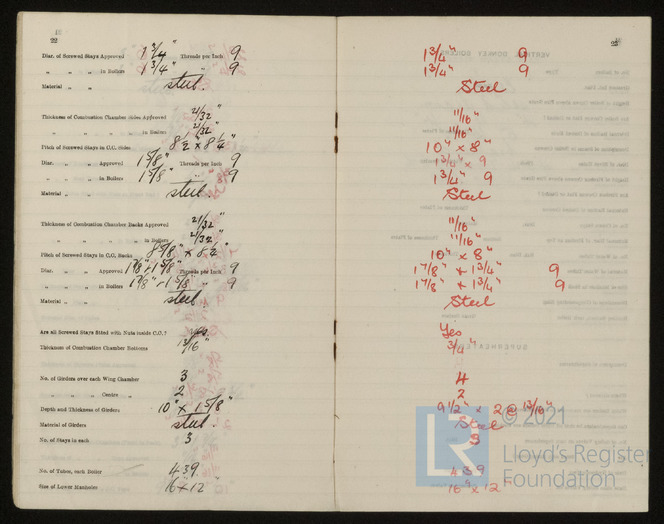 22
Diar. of Screwed Stays Approved 1 3/4" Threads per Inch 9
" " " in Boilers 1 3/4" " 9
Material " " steel.
Thickness of Combustion Chamber Sides Approved 21/32"
" " " " in Boilers 21/32"
Pitch of Screwed Stays in C.C. Sides 8 1/2" x 8 1/4"
Diar. " " Approved 1 5/8" Threads per Inch 9
" " " in Boilers 1 5/8" " 9
Material " " steel
Thickness of Combustion Chamber Backs Approved 21/32"
" " " " in Boilers 21/32"
Pitch of Screwed Stays in C.C. Backs 8 5/8" x 8 1/2"
Diar. " " Approved 1 7/8" + 1 5/8" Threads per Inch 9
" " " in Boilers 1 7/8" + 1 5/8" " 9
Material " " steel.
Are all Screwed Stays fitted with Nuts inside C.C.? Yes.
Thickness of Combustion Chamber Bottoms 13/16"
No. of Girders over each Wing Chamber 3
" " " " Centre " 2
Depth and Thickness of Girders 10" x 1 5/8"
Material of Girders steel.
No. of Stays in each 3
No. of Tubes, each Boiler 439
Size of Lower Manholes 16" x 12"
1 3/4" 9
1 3/4" 9
Steel
11/16"
11/16"
10" x 8"
1 3/4" x 9
1 3/4" 9
Steel
11/16"
11/16"
10" x 8"
1 7/8" + 1 3/4" 9
1 7/8" + 1 3/4" 9
Steel
Yes
3/4"
4
2
9 1/2" x 2 @ 13/16"
Steel
3
439
16" x 12"
© 2021
LR
Lloyd's Register
Foundation